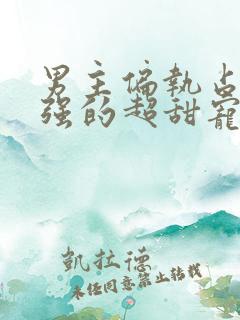 男主偏執占
強的超甜寵
凱拉德
未经同意禁止转载